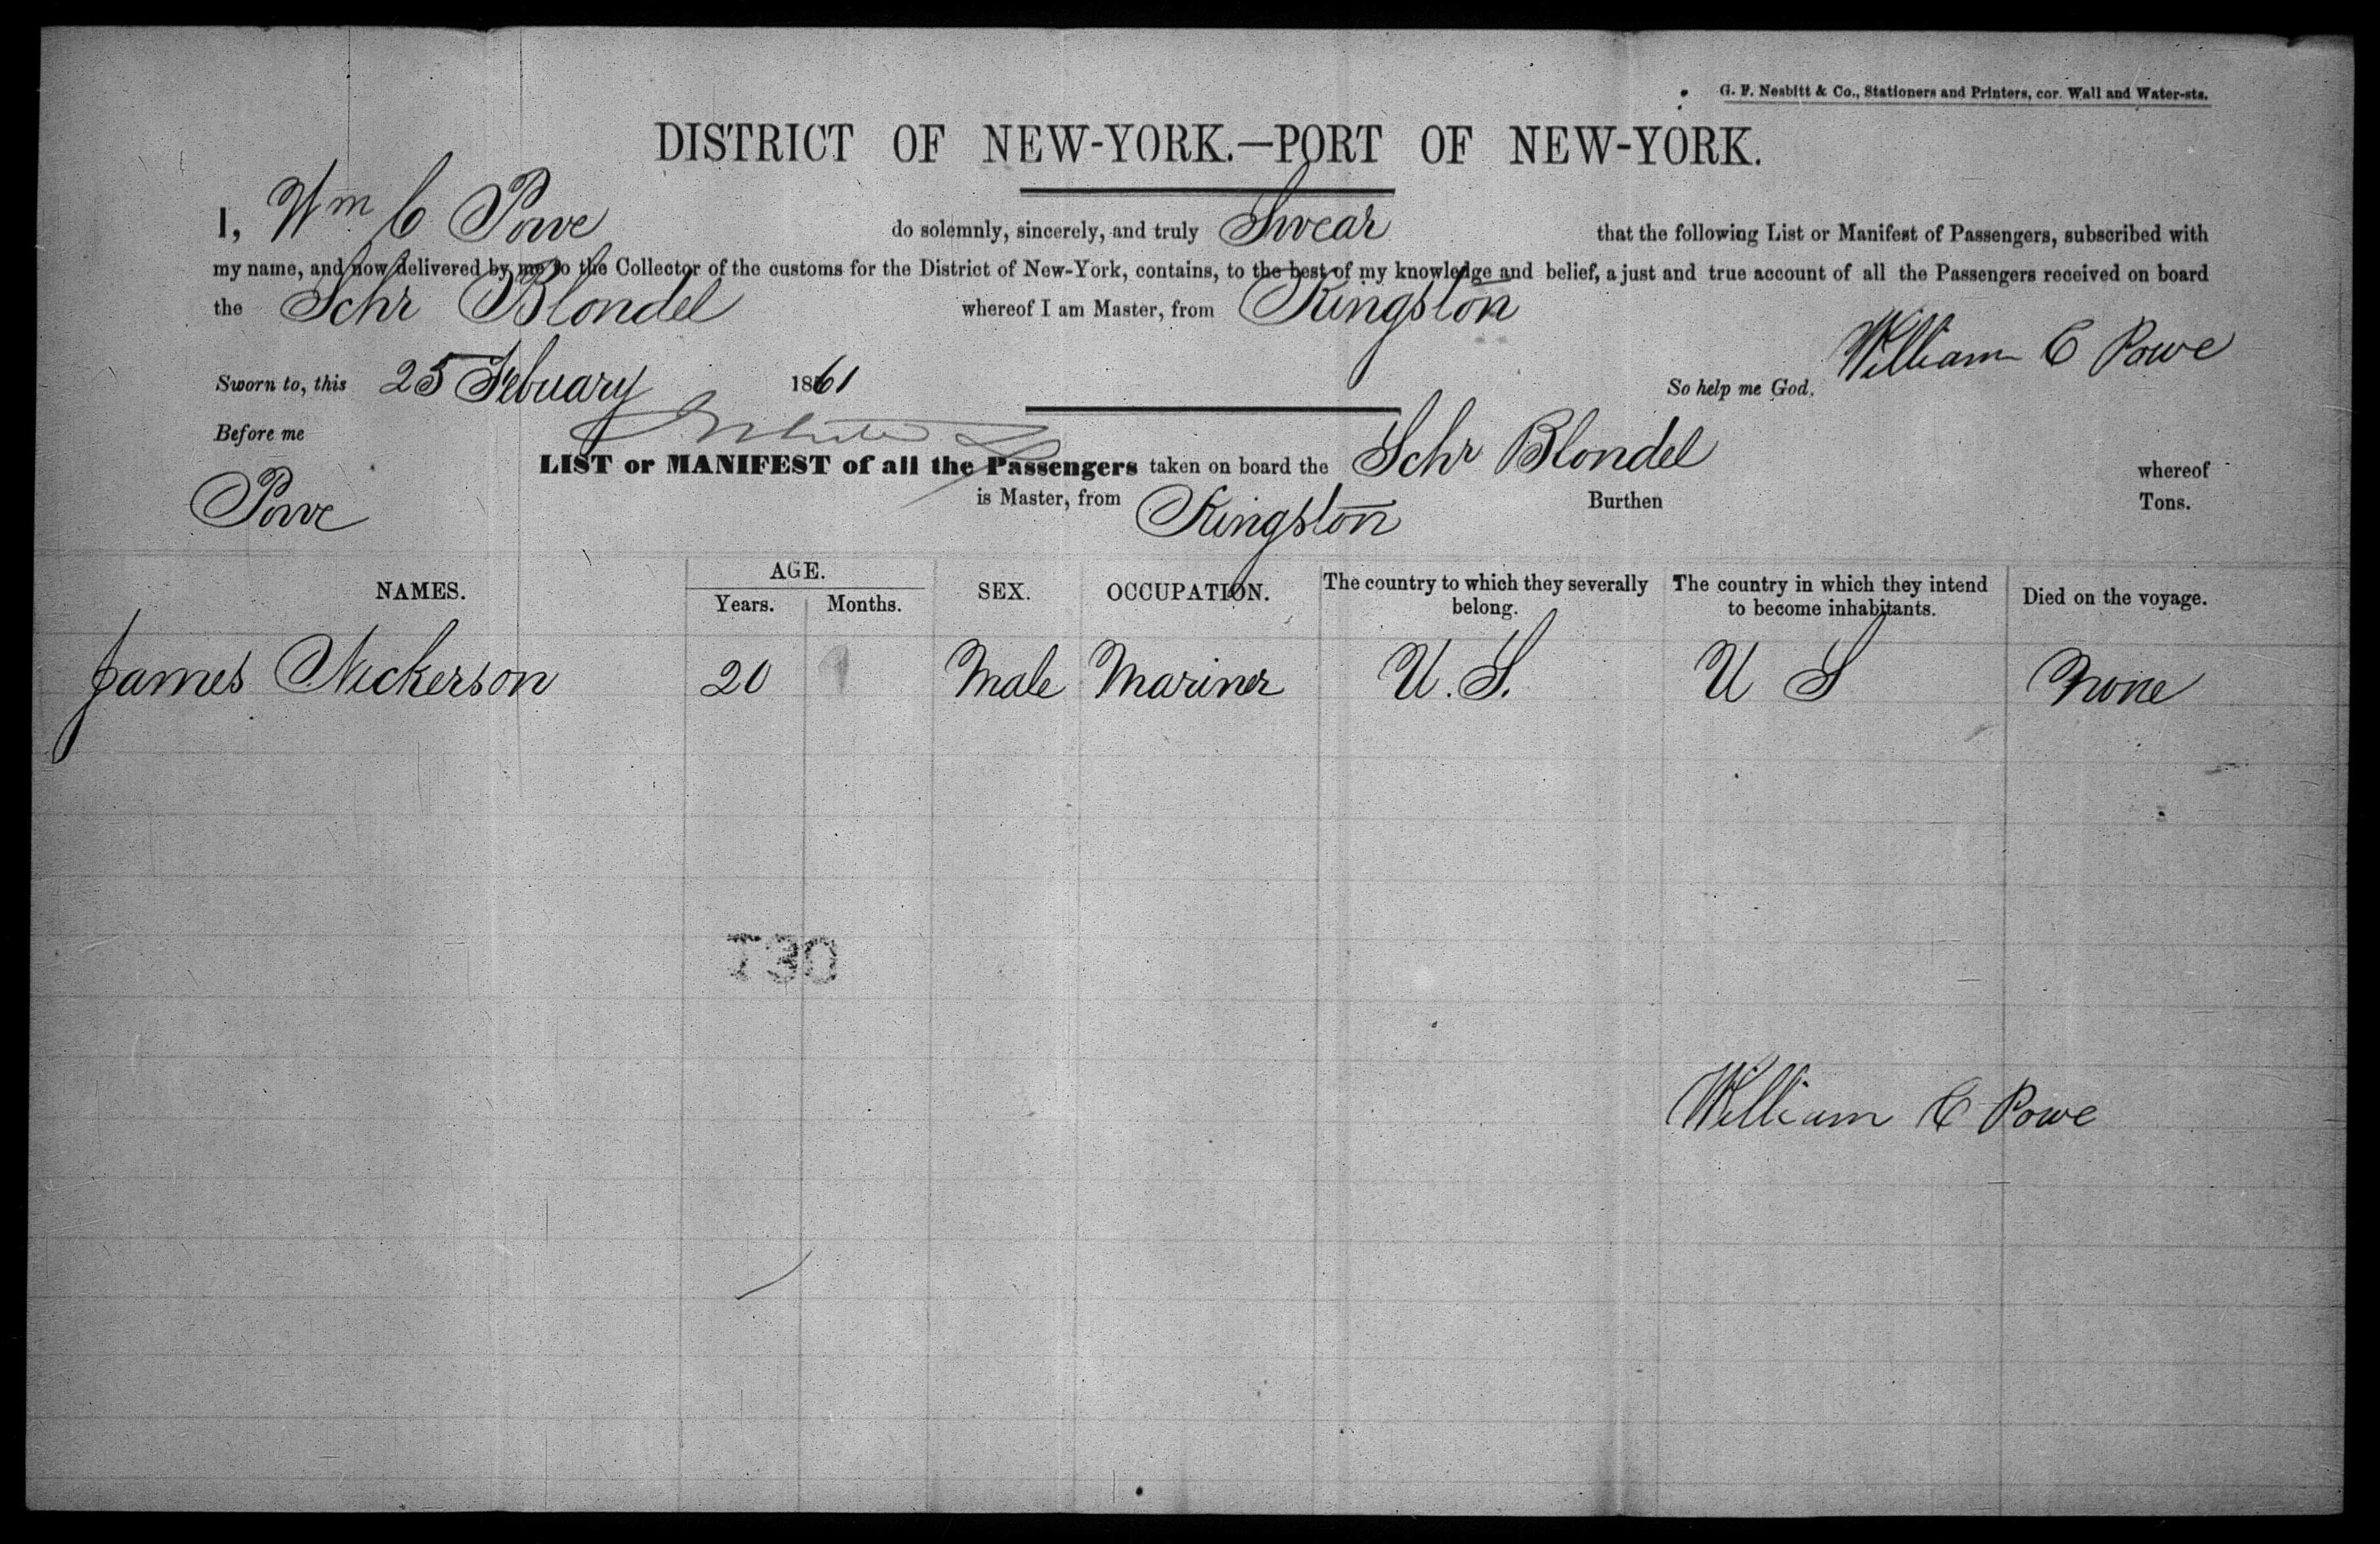 G. F. Nesbitt & Co., Stationers and Printers, cor. Wall and Water-sts.
DISTRICT OF NEW-YORK.—PORT OF NEW-YORK.
I, Wm C Powe do solemnly, sincerely, and truly Swear that the following List or Manifest of Passengers, subscribed with
my name, and now delivered by me to the Collector of the customs for the District of New-York, contains, to the best of my knowledge and belief, a just and true account of all the Passengers received on board
the Schr Blondel whereof I am Master, from Kingston
William C Powe
Sworn to, this 25 Febuary 1861 So help me God.
Before me
LIST or MANIFEST of all the Passengers taken on board the Schr Blondel whereof
Powe is Master, from Kingston Burthen Tons.
NAMES. AGE. Years. Months. SEX. OCCUPATION. The country to which they severally belong. The country in which they intend to become inhabitants. Died on the voyage.
James Nickerson 20 Male Mariner U.S. U S None
130
William C Powe